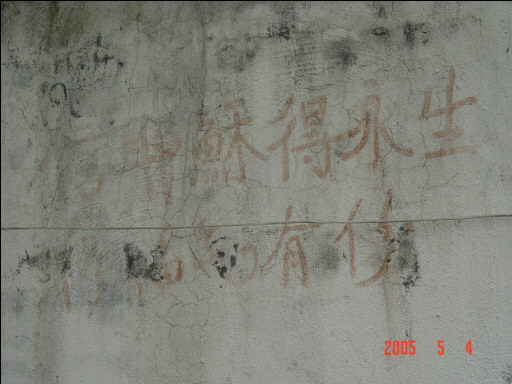 信耶穌得永生
有份
2005 5 4